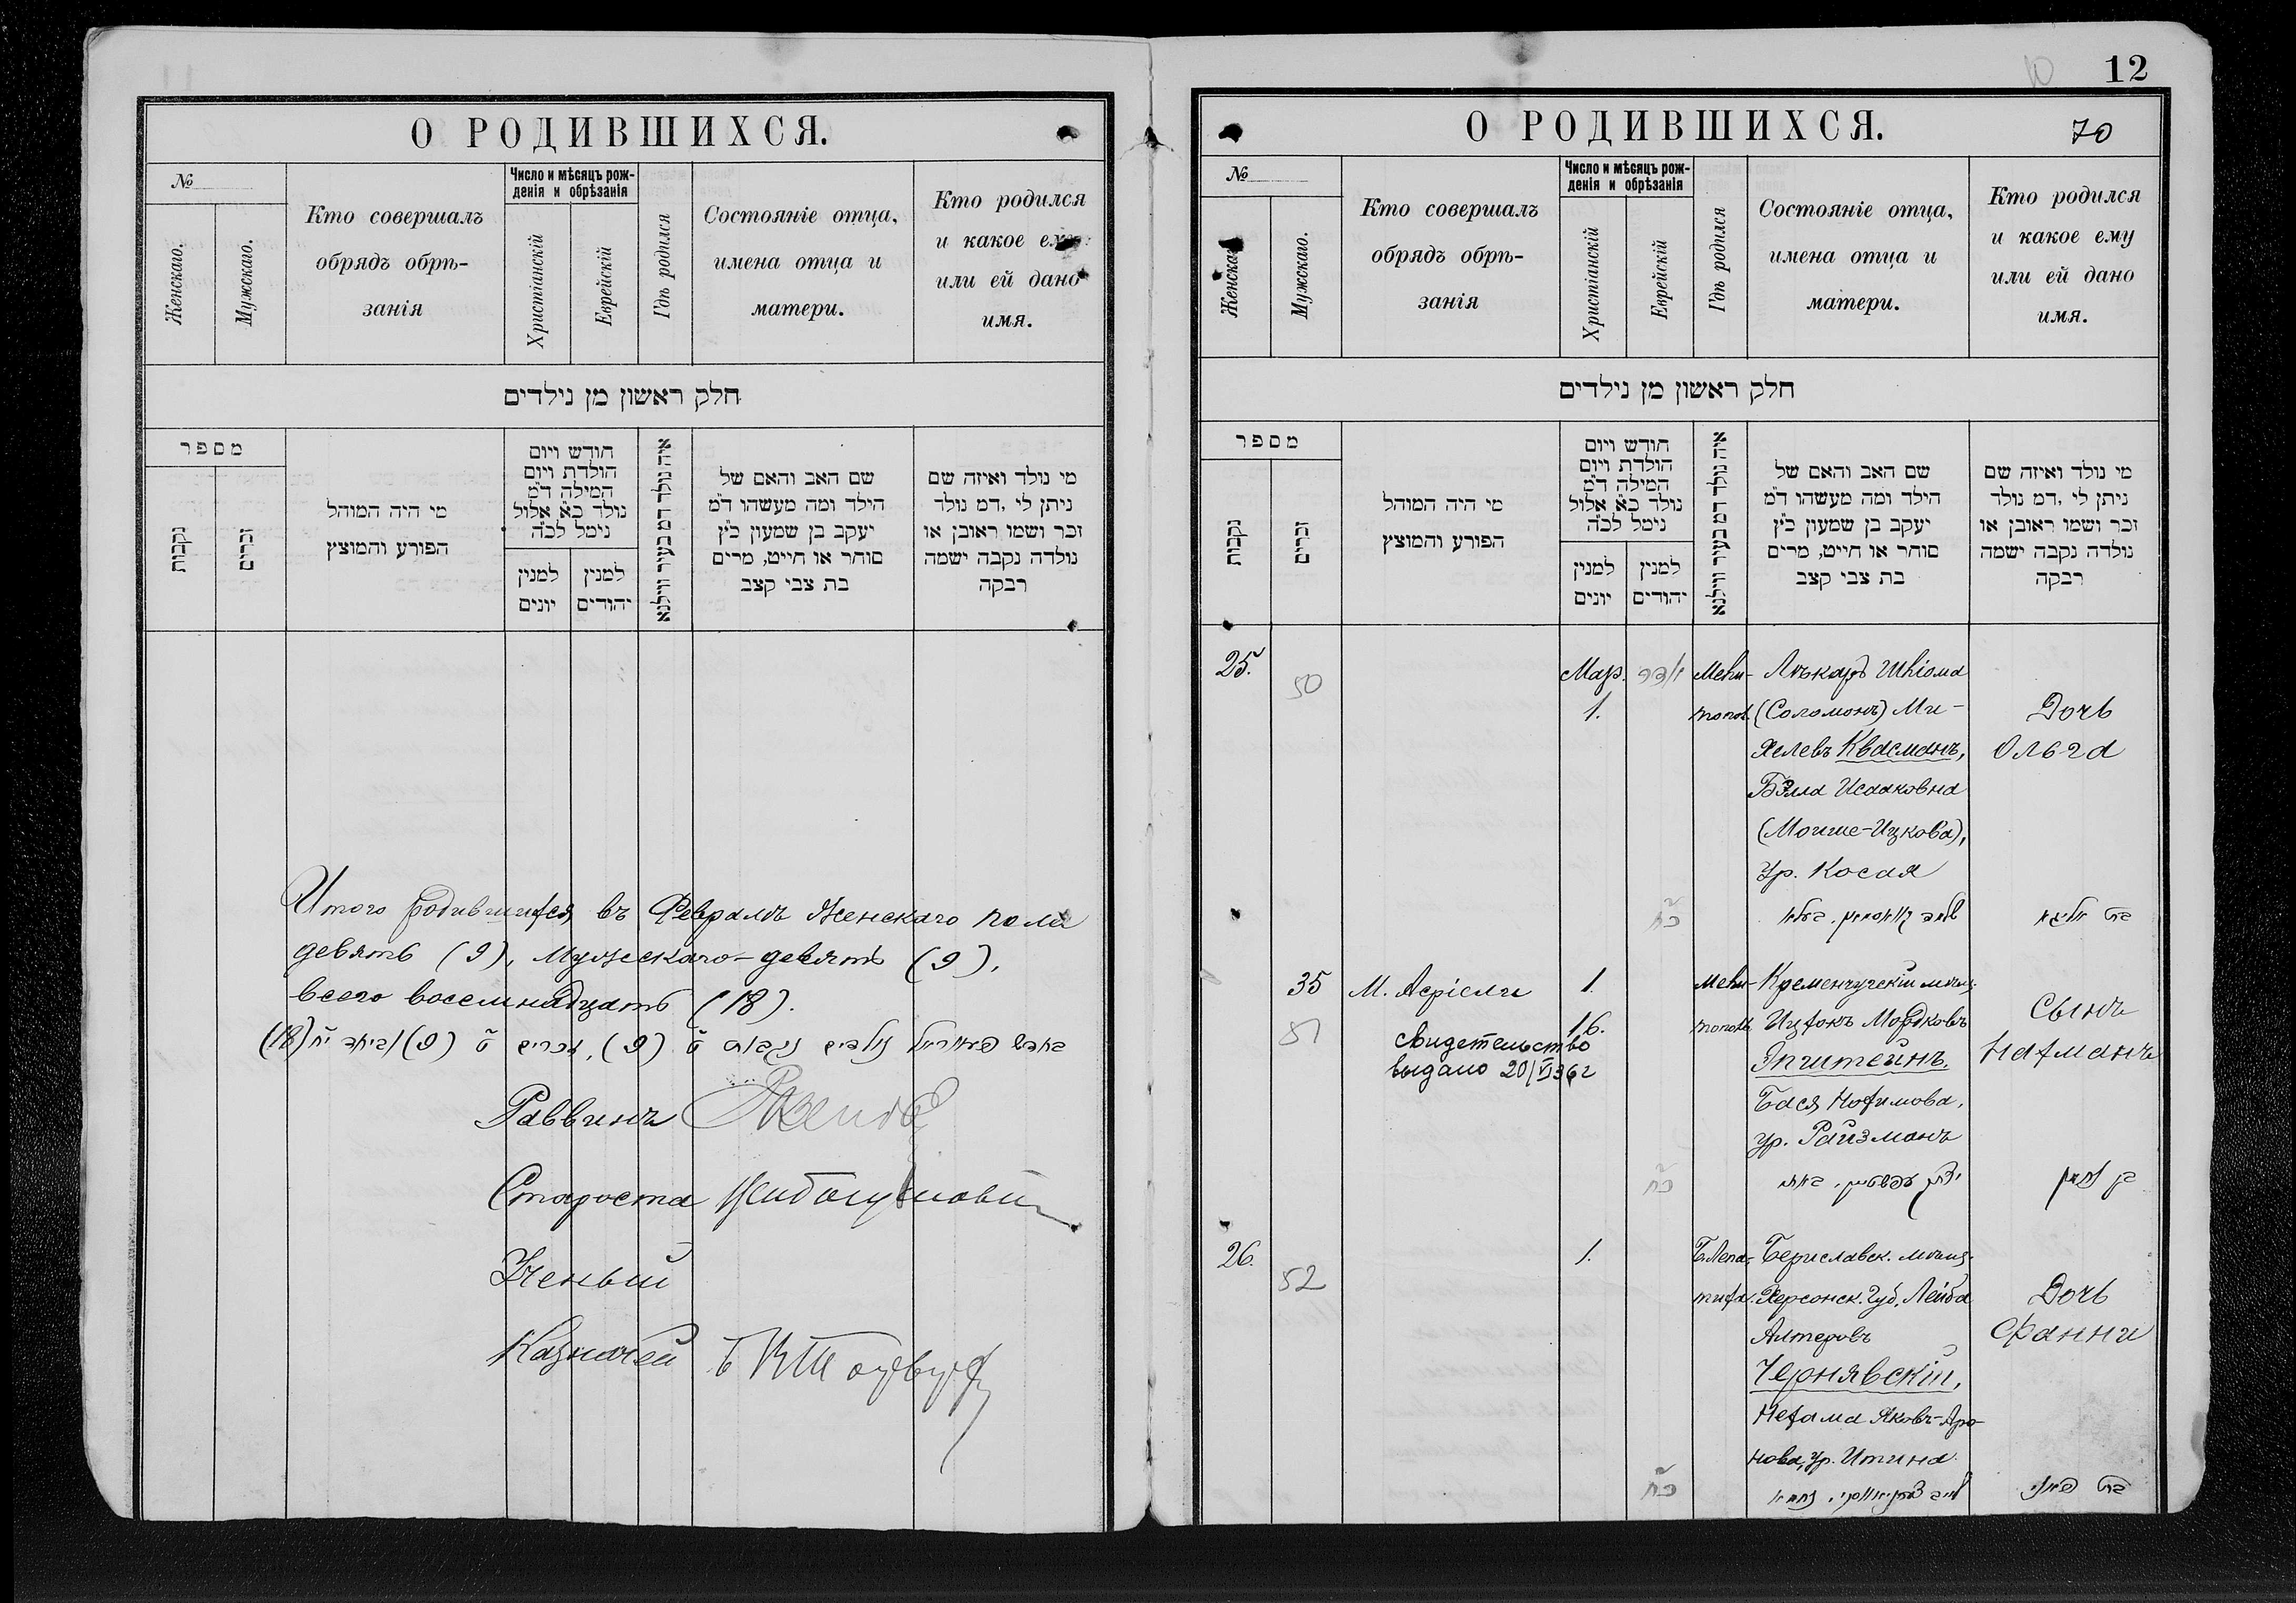 О РОДИВШИХСЯ.
№
Женскаго.
Мужскаго.
Кто совершалъ
обрядъ обрѣ-
занія
Число и мѣсяцъ рож-
денія и обрѣзанія
Христіанскій
Еврейскій
Гдѣ родился
Состояніе отца,
имена отца и
матери.
Кто родился
и какое ему
или ей дано
имя.
חלק ראשון מן נילדים
מספר
נקבות
זכרים
מי היה המוהל
הפורע והמוצץ
חודש ויום
הולדת ויום
המילה ד״מ
נולד כ״א אלול
נימל לכ״ה
למנין
יונים
למנין
יהודים
איה נולד דמ בעיר ווילנא
שם האב והאם של
הילד ומה מעשהו ד״מ
יעקב בן שמעון כ״ץ
סוחר או חייט, מרים
בת צבי קצב
מי נולד ואיזה שם
ניתן לי, דמ נולד
זכר ושמו ראובן או
נולדה נקבה ישמה
רבקה
Итого родившихся въ Февралѣ Женскаго пола
девять (9), Мужескаго - девять (9),
всего восемнадцать (18).
בחדש פעווריאל נולדים נקבות ט (9), זכרים ט (9) וביחד יח (18)
Раввинъ
Староста
Ученый
Казначей
12
О РОДИВШИХСЯ.
70
№
Женскаго.
Мужскаго.
Кто совершалъ
обрядъ обрѣ-
занія
Число и мѣсяцъ рож-
денія и обрѣзанія
Христіанскій
Еврейскій
Гдѣ родился
Состояніе отца,
имена отца и
матери.
Кто родился
и какое ему
или ей дано
имя.
חלק ראשון מן נילדים
מספר
נקבות
זכרים
מי היה המוהל
הפורע והמוצץ
חודש ויום
הולדת ויום
המילה ד״מ
נולד כ״א אלול
נימל לכ״ה
למנין
יונים
למנין
יהודים
איה נולד דמ בעיר ווילנא
שם האב והאם של
הילד ומה מעשהו ד״מ
יעקב בן שמעון כ״ץ
סוחר או חייט, מרים
בת צבי קצב
מי נולד ואיזה שם
ניתן לי, דמ נולד
זכר ושמו ראובן או
נולדה נקבה ישמה
רבקה
25.
50
Мар.
1.
Мели-
тополь
Лѣкарь Шліома
(Соломонъ) Ми-
хелевъ Квасманъ,
Бэлла Исааковна
(Моише-Ицкова),
ур. Косая
Дочь
Ольга
כ״ח
בת אלגא
35
51
М. Асріели
1.
16.
Мели-
тополь
Кременчугскій мѣщ.
Ицхокъ Мордковъ
Эпштейнъ.
Бася Нохимова,
ур. Райзманъ
Сынъ
Нахманъ
свидетельство
выдано 20/VI 36 г
כ״ח
יצחק עפשטיין, באסי
בן נחמן
26.
52
1.
Б.Лепа-
тиха.
Бериславск. мѣщ.
Херсонск. Губ. Лейба
Алтеровъ
Чернявскій,
Нехама Яковъ-Аро-
нова, ур. Итина
Дочь
Фанни
כ״ח
בת פאני